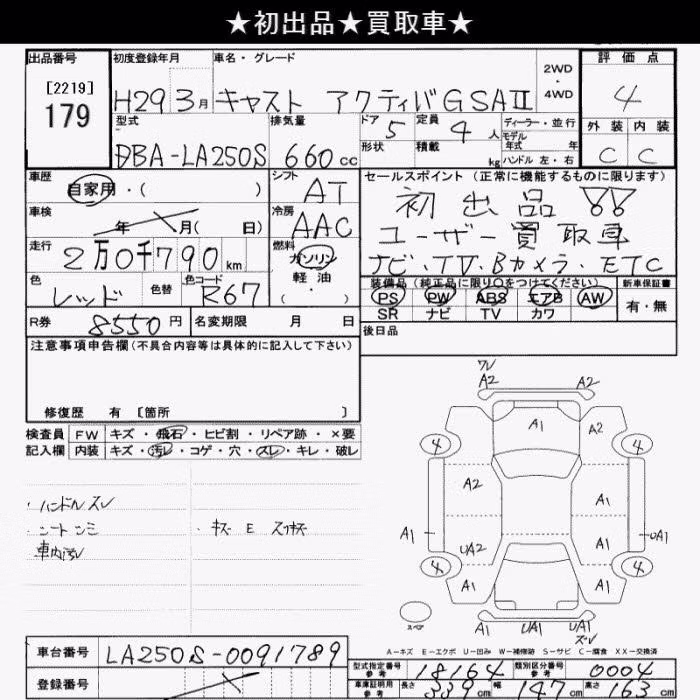 ★初出品★買取車★
出品番号 初度登録年月 車名・グレード 評価点
[2219] 2WD
179 H29 3月 キャスト アクティバGSAⅡ ・ 4WD 4
型式 排気量 ドア 5 定員 4人 ディーラー・並行 外装 内装
モデル 年式 年
DBA-LA250S 660cc 形状 積載 kg ハンドル 左・右 C C
車歴 シフト AT セールスポイント (正常に機能するものに限ります)
自家用・( ) 初出品!!
車検 冷房 AAC
年 月( 日) ユーザー買取車
走行 燃料
2万0千790km ガソリン ナビ・TV・Bカメラ・ETC
・
色 色替 色コード 軽油 装備品(純正品に限り○をつけてください) 新車保証書
レッド R67 PS PW ABS エアB AW 有・無
SR ナビ TV カワ
R券 8550円 名変期限 月 日 後日品
注意事項申告欄(不具合内容等は具体的に記入して下さい)
修復歴 有 [箇所 ]
検査員 FW キズ・飛石・ヒビ割・リペア跡・×要
記入欄 内装 キズ・汚レ・コゲ・穴・スレ・キレ・破レ
・ハンドルスレ
・シートシミ ・キズ E スリキズ
車内汚レ
ワレ
A2 A2
A1 A2
4 4
A2 A1
A1 UA1
UA2 A1
4 4
A1 A1
スペア A1 UA1 UA1
ズレ
A-キズ E-エクボ U-凹み W-補修跡 S-サビ C-腐食 XX-交換済
車台番号 LA250S-0091789
型式指定番号 参考 18164 類別区分番号 参考 0004
登録番号 車庫証明用 参考 長さ 339cm 幅 147cm 高さ 163cm